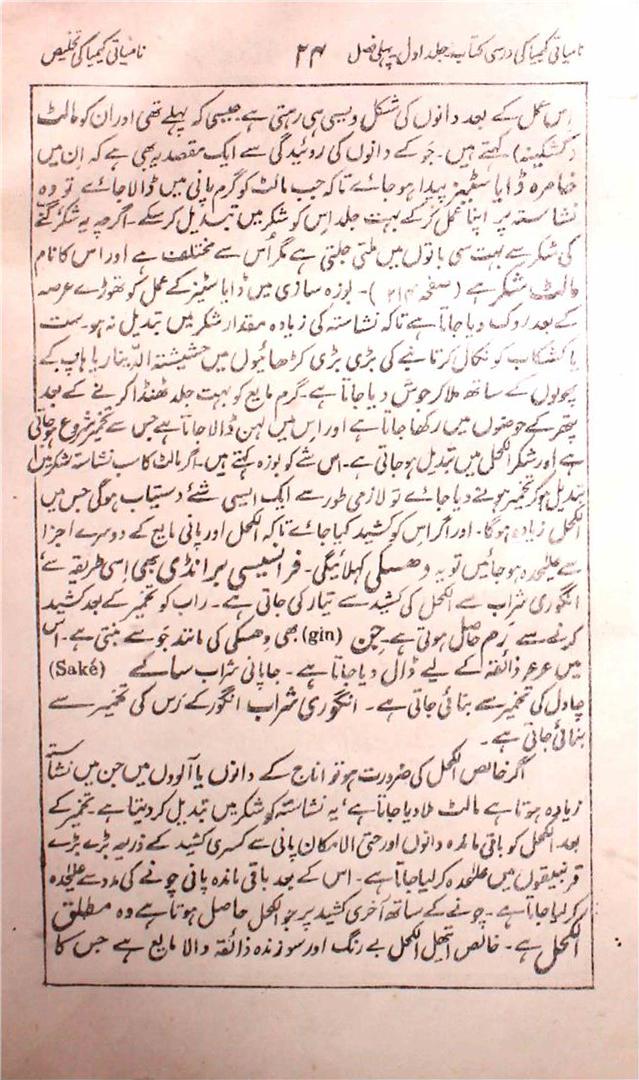 نامیاتی کیمیا کی درسی کتاب۔ جلد اول پہلی فصل ۲۴ نامیاتی کیمیا کی تخلیص
اِس عمل کے بعد دانوں کی شکل ویسی ہی رہتی ہے۔ جیسی کہ پہلے تھی اور ان کو مالٹ
(کشکینہ) کہتے ہیں۔ جَو کے دانوں کی روئیدگی سے ایک مقصد یہ بھی ہے کہ اِن میں
خامرہ ڈایاسٹیز پیدا ہو جائے تاکہ جب مالٹ کو گرم پانی میں ڈالا جائے تو وہ
نشاستہ پر اپنا عمل کر کے بہت جلد اس کو شکر میں تبدیل کر سکے۔ اگرچہ یہ شکر گنّے
کی شکر سے بہت سی باتوں میں ملتی جلتی ہے مگر اُس سے مختلف ہے اور اس کا نام
مالٹ شکر ہے (صفحہ ۲۱۴)۔ بوزہ سازی میں ڈایاسٹیز کے عمل کو تھوڑے عرصہ
کے بعد روک دیا جاتا ہے تاکہ نشاستہ کی زیادہ مقدار شکر میں تبدیل نہ ہو۔ ست
یا کشکاب کو نکال کر تانبے کی بڑی بڑی کڑھائیوں میں حشیشتہ الدّینار یا ہاپ کے
پھولوں کے ساتھ ملا کر جوش دیا جاتا ہے۔ گرم مایع کو بہت جلد ٹھنڈا کرنے کے بعد
پتھر کے حوضوں میں رکھا جاتا ہے اور اس میں لہن ڈالا جاتا ہے جس سے تخمیر شروع ہو جاتی
ہے اور شکر الکحل میں تبدیل ہو جاتی ہے۔ اس شے کو بوزہ کہتے ہیں۔ اگر مالٹ کا سب نشاستہ شکر میں
تبدیل ہو کر تخمیر ہونے دیا جائے تو لازمی طور سے ایک ایسی شئے دستیاب ہوگی جس میں
الکحل زیادہ ہوگا۔ اور اگر اس کو کشید کیا جائے تاکہ الکحل اور پانی مایع کے دوسرے اجزا
سے علیٰحدہ ہو جائیں تو یہ وھسکی کہلائیگی۔ فرانسیسی برانڈی بھی اِسی طریقہ سے
انگوری شراب سے الکحل کی کشید سے تیار کی جاتی ہے۔ راب کو تخمیر کے بعد کشید
کرنے سے رَم حاصل ہوتی ہے۔ جِن (gin) بھی وھسکی کی مانند جَو سے بنتی ہے۔ اس
میں عرعر ذائقہ کے لیے ڈال دیا جاتا ہے۔ جاپانی شراب ساکے (Saké)
چاول کی تخمیر سے بنائی جاتی ہے۔ انگوری شراب انگور کے رَس کی تخمیر سے
بنائی جاتی ہے۔
اگر خالص الکحل کی ضرورت ہو تو اناج کے دانوں یا آلووں میں جن میں نشاستہ
زیادہ ہوتا ہے مالٹ ملا دیا جاتا ہے، یہ نشاستہ کو شکر میں تبدیل کر دیتا ہے۔ تخمیر کے
بعد الکحل کو باقی ماندہ دانوں اور حتی الامکان پانی سے کسری کشید کے ذریعہ بڑے بڑے
قرنبیقوں میں علیٰحدہ کر لیا جاتا ہے۔ اس کے بعد باقی ماندہ پانی چونے کی مدد سے علیٰحدہ
کر لیا جاتا ہے۔ چونے کے ساتھ آخری کشید پر جو الکحل حاصل ہوتا ہے وہ مطلق
الکحل ہے۔ خالص ایتھل الکحل بے رنگ اور سوزندہ ذائقہ والا مایع ہے جس کا